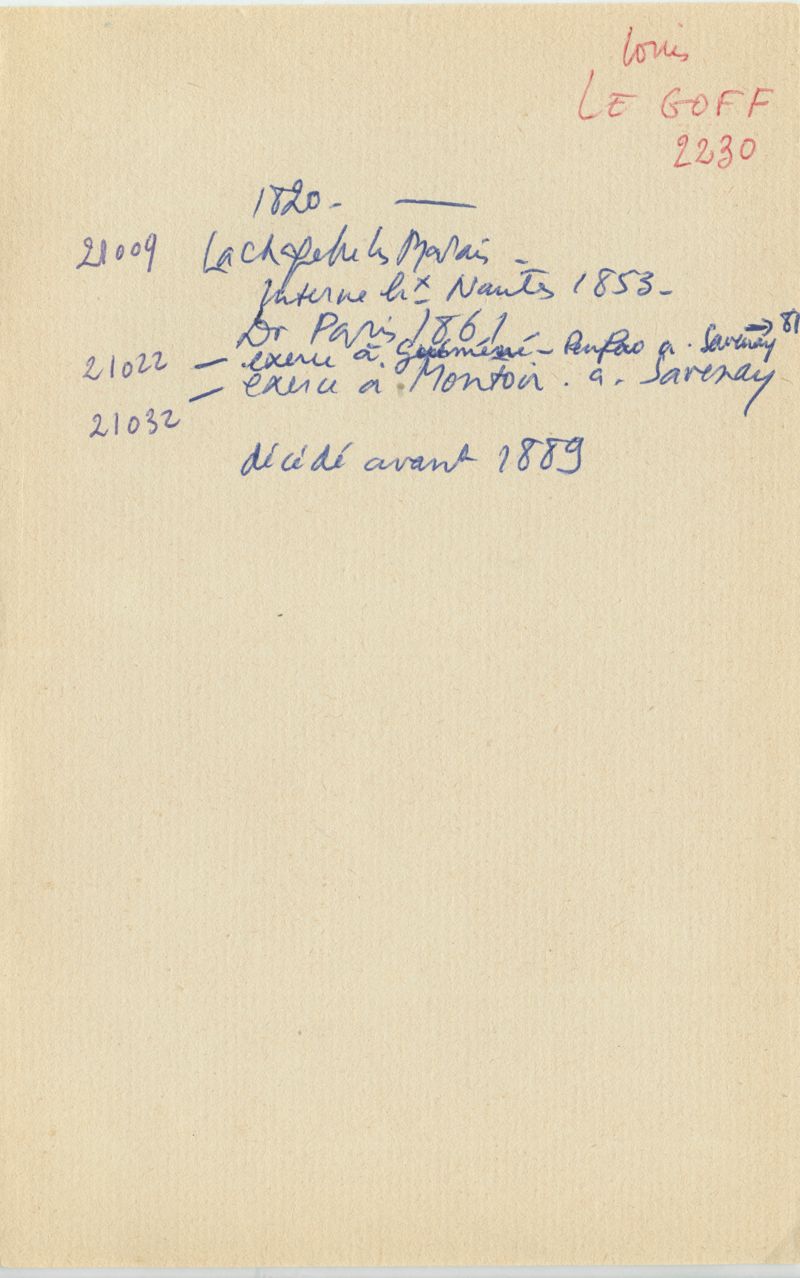 Louis
LE GOFF
2230
1820 - —
21009 La Chapelle les Marais -
Interne hx Nantes 1853 -
Dr Paris 1861
21022 — exerce à Guéméné - Penfao a. Savenay → 81
— exerce à Montoir. a. Savenay
21032
décédé avant 1889